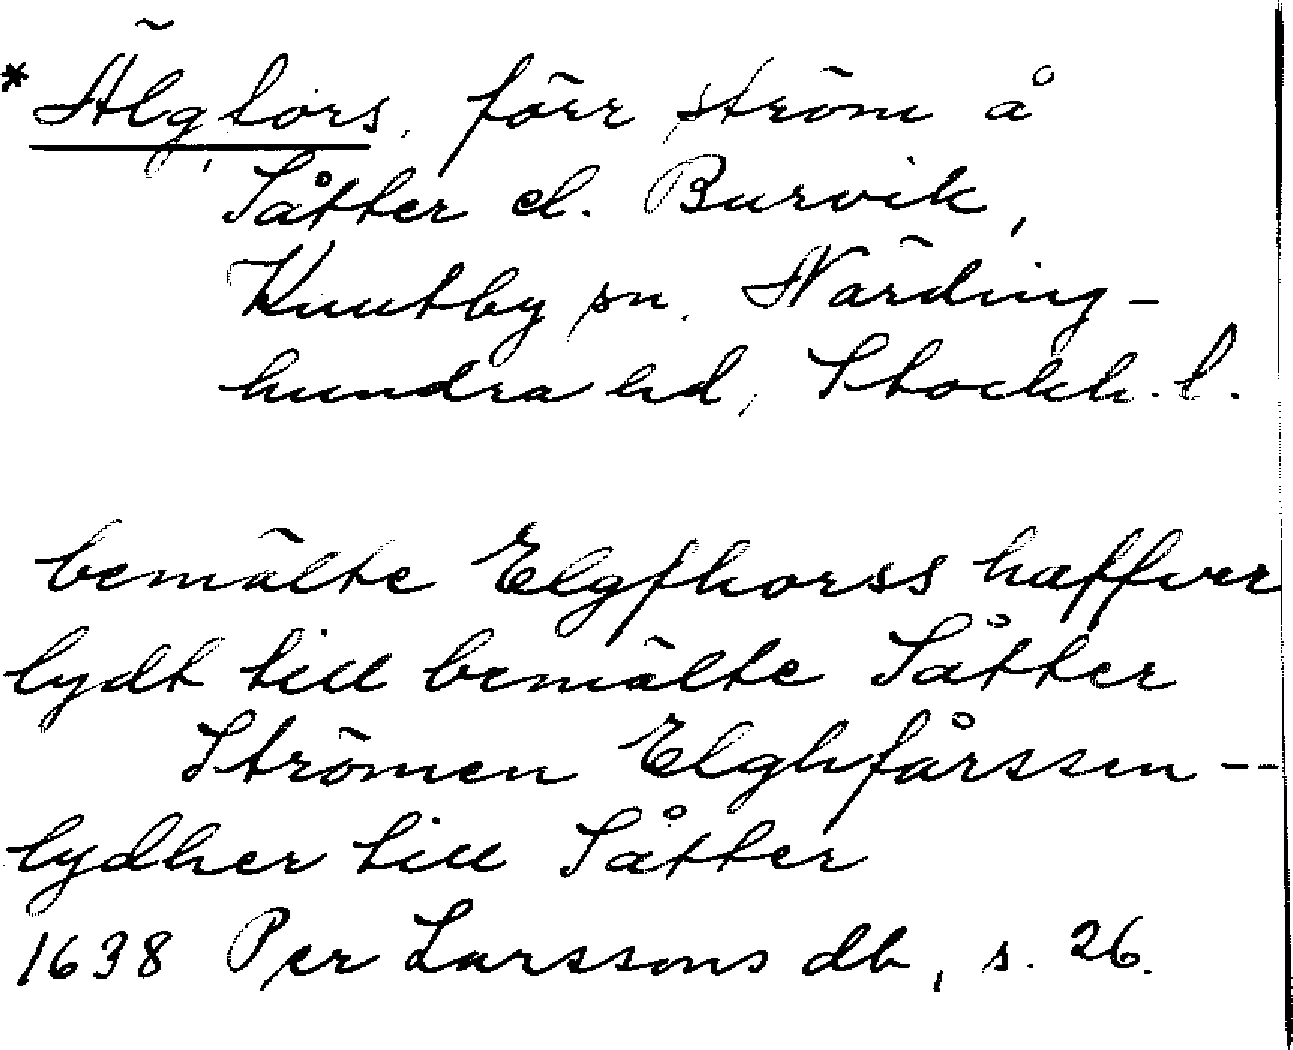 * Älgfors, förr ström å
Såtter el. Burvik,
Knutby sn. Närding-
hundra hd, Stockh. l.
bemälte Elgfhorss haffver
lydt till bemälte Såtter
Strömen Elghfårssen --
lydher till Såtter
1638 Per Larssons db, s. 26.